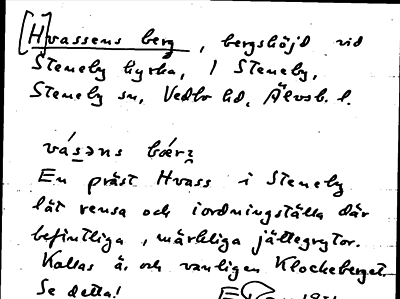 [H]vassens berg, bergshöjd vid
Steneby kyrka, i Steneby,
Steneby sn, Vedbo hd, Älvsb. l.
vásəns bær̨
En präst Hvass i Steneby
lät rensa och iordningställa där
befintliga, märkliga jättegrytor.
Kallas ä. och vanligen Klockeberget.
Se detta!